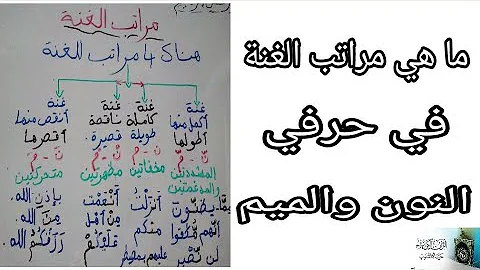 مراتب الغنة
هناك 4 مراتب للغنة
غنة غنة غنة غنة
أكمل منها كاملة ناقصة أنقص منها
أطولها طويلة قصيرة أقصرها
نّ - مّ ن - م ن - م ن - م
المشددتين مخفاتين مظهرتين متحركتين
والمدغمتين
أنزلت أنعمت بإذن الله
منكم من أهل من الله
لن نصبر عليهم قلتم رزقكم الله
ما هي مراتب الغنة
في حرفي
النون والميم